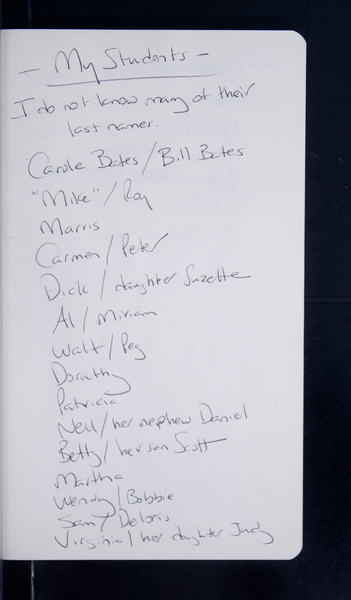 — My Students —
I do not know many of their
last names.
Carole Bates / Bill Bates
"Mike" / Roy
Marris
Carmen / Peter
Dick / daughter Suzette
Al / Miriam
Walt / Peg
Dorathy
Patricia
Nell / her nephew Daniel
Betty / her son Scott
Martha
Wendy / Bobbie
Sam / Deloris
Virginia / her daughter Judy